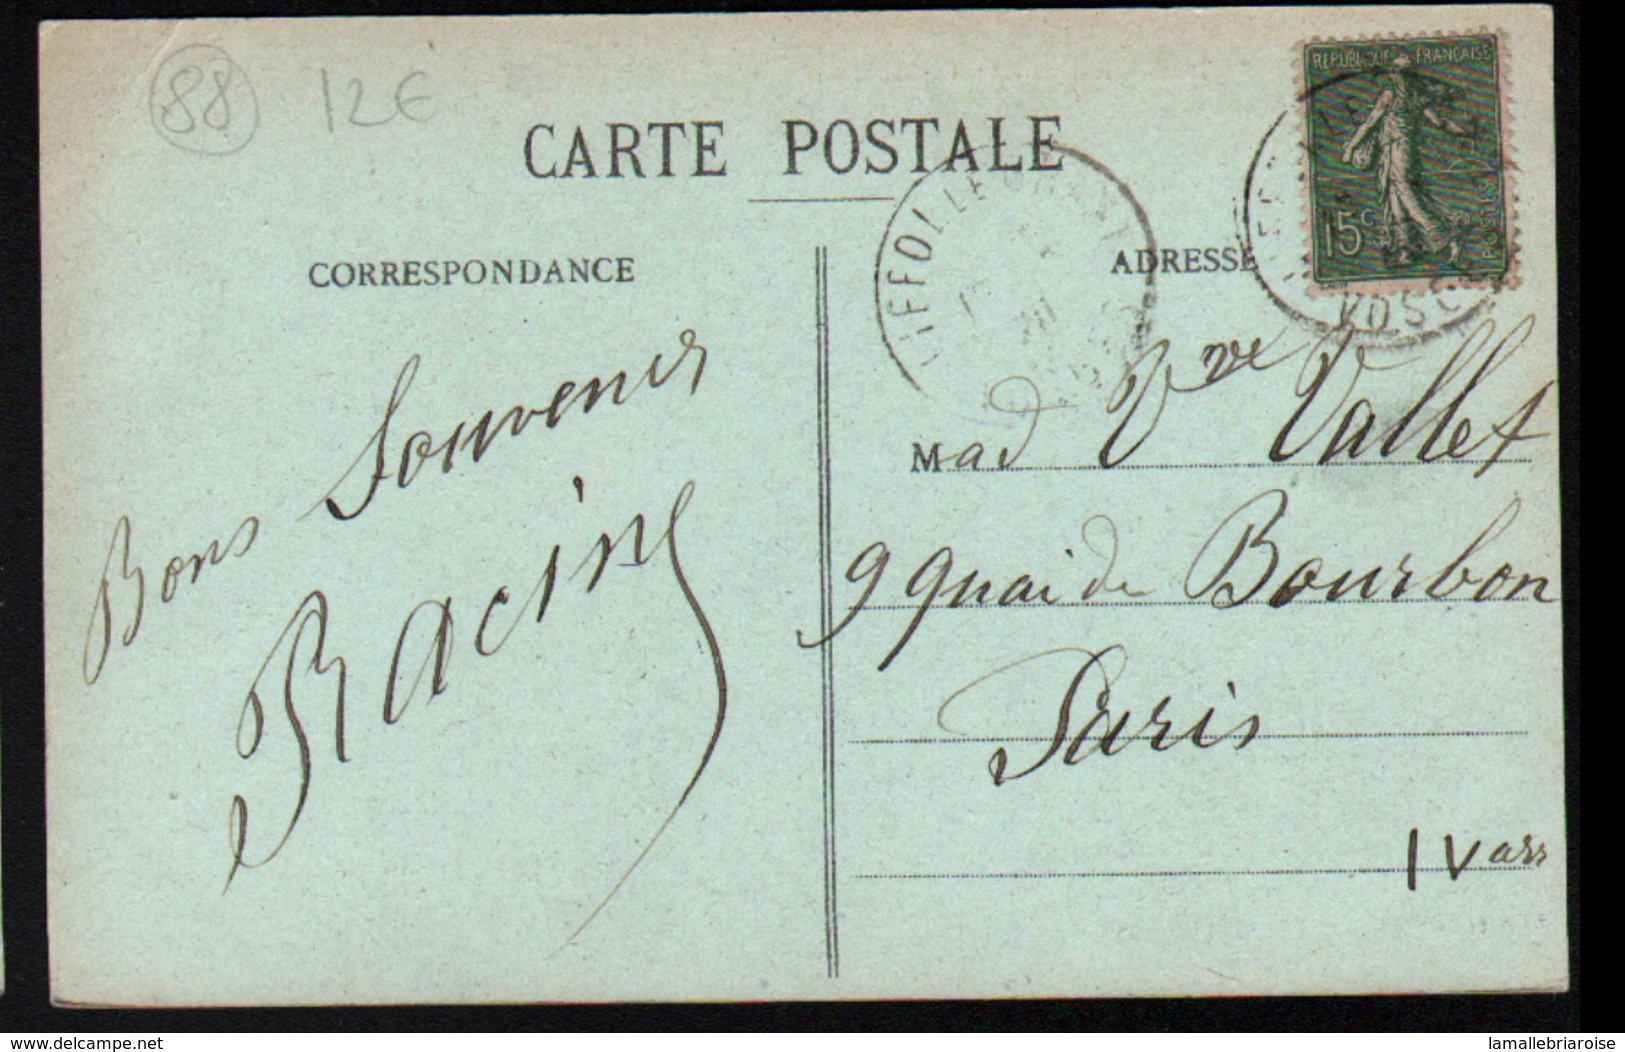 88 12€
CARTE POSTALE
CORRESPONDANCE
ADRESSE
REPUBLIQUE FRANÇAISE
15c
POSTES
LIFFOL LE GRAND
VOSGES
Bons Souvenirs
Racine
Mad Vve Vallet
9 quai de Bourbon
Paris
IV arr
www.delcampe.net
lamallebriaroise